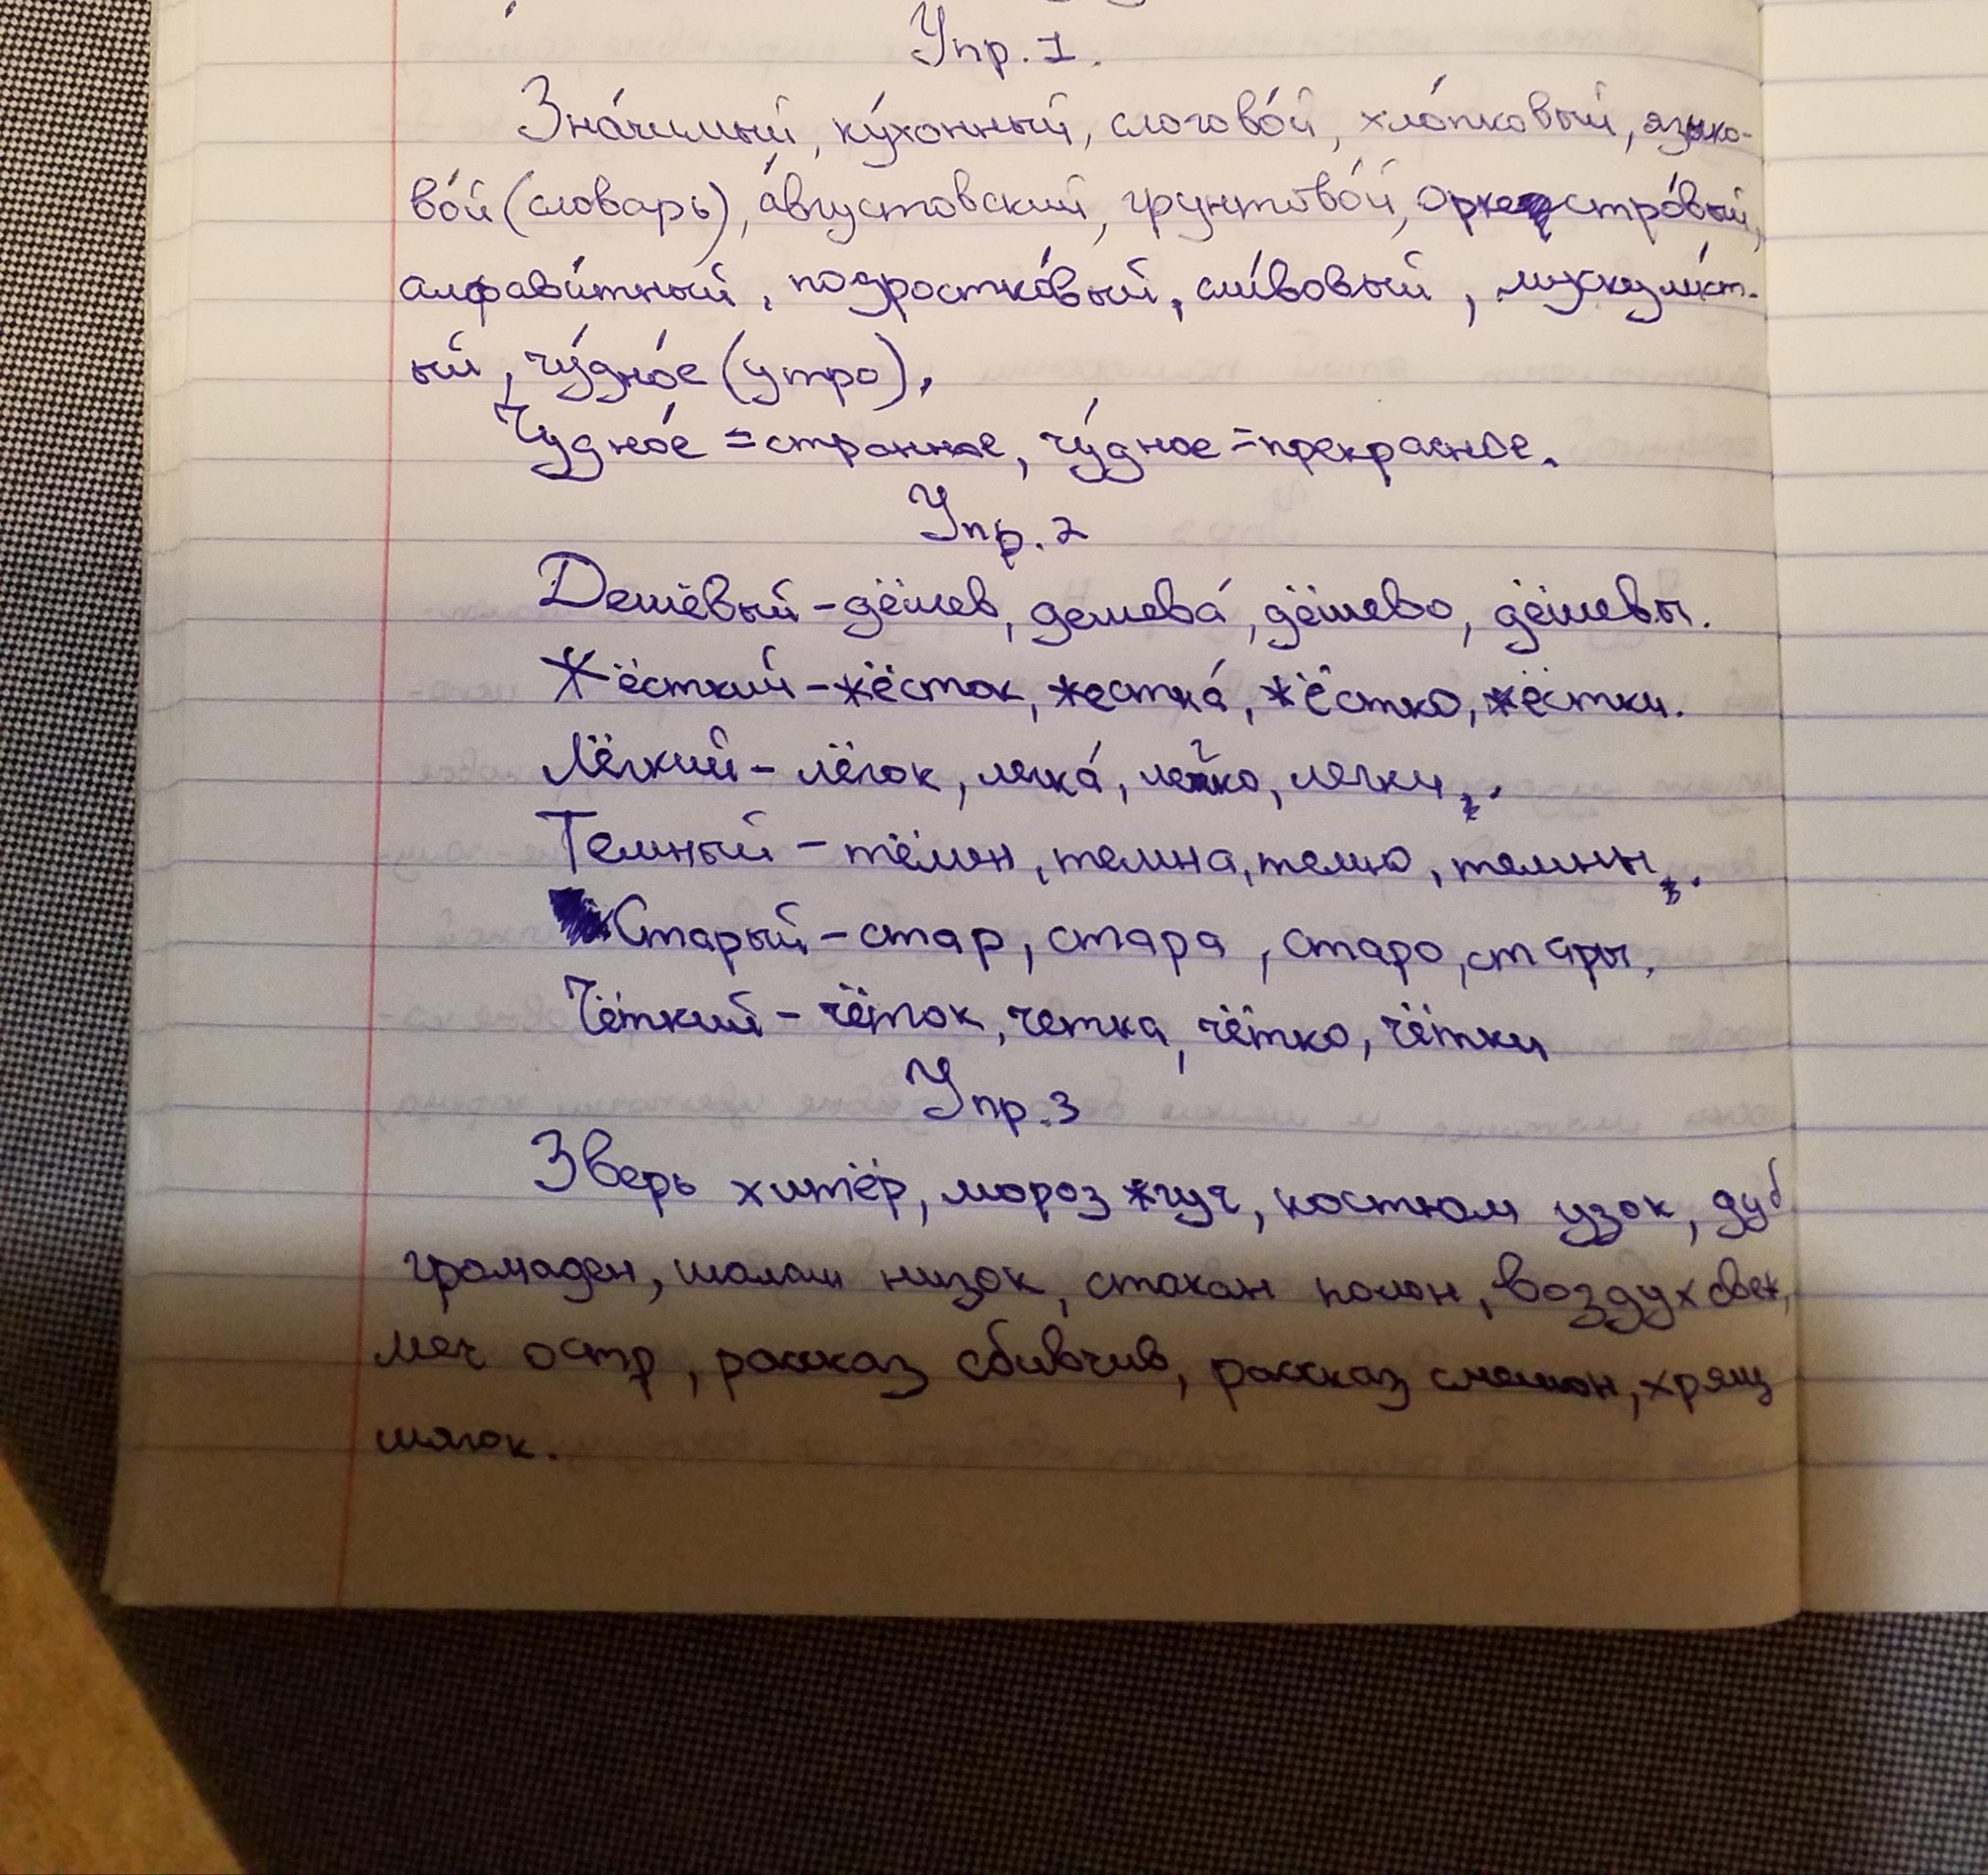 Упр. 1.
Зна́чимый, ку́хонный, слогово́й, хло́пковый, языко-
во́й (словарь), а́вгустовский, грунтово́й, оркестро́вый,
алфави́тный, подростко́вый, сли́вовый,
ый, чу́дно́е (утро),
Чудно́е = странное, чу́дное = прекрасное.
Упр. 2
Дешёвый – дёшев, дешева́, дёшево, дёшевы.
Жёсткий – жёсток, жестка́, жёстко, жёстки.
Лёгкий – лёгок, легка́, легко, легки.
Темный – тёмен, темна, темно, темны.
Старый – стар, стара, старо, стары.
Чёткий – чёток, четка, чётко, чётки
Упр. 3
Зверь хитёр, мороз жгуч, костюм узок, дуб
громаден, шалаш низок, стакан полон, воздух свеж,
меч остр, рассказ сбивчив, рассказ смешон, хрящ
мягок.